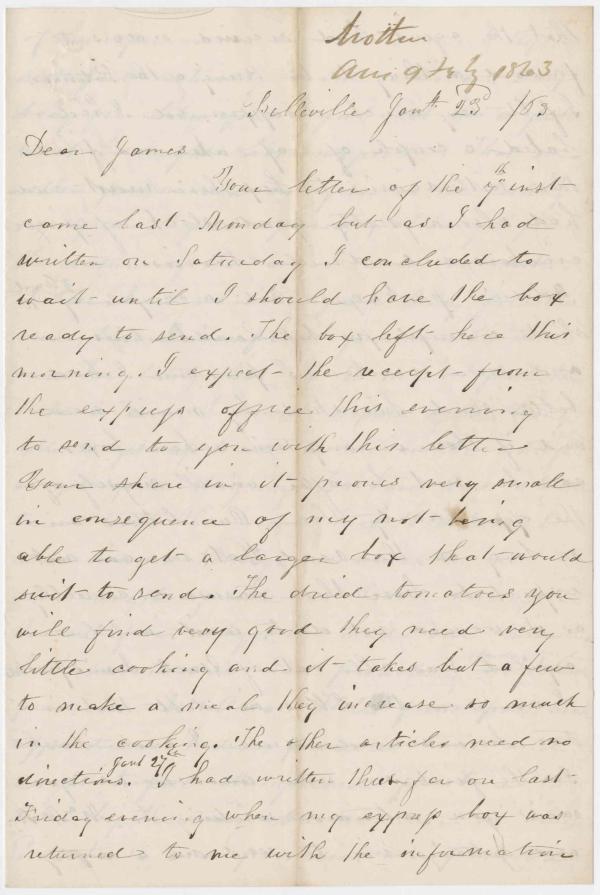 Mother
Ans 9 Feby 1863
Belleville Jany 23d /63
Dear James
Your letter of the 7th inst
came last Monday but as I had
written on Saturday I concluded to
wait until I should have the box
ready to send. The box left here this
morning. I expect the receipt from
the express office this evening
to send to you with this letter
Your share in it proves very small
in consequence of my not being
able to get a larger box that would
suit to send. The dried tomatoes you
will find very good they need very
little cooking and it takes but a few
to make a meal they increase so much
in the cooking. The other articles need no
Jany 27th
directions. I had written thus far on last
Friday evening when my express box was
returned to me with the information